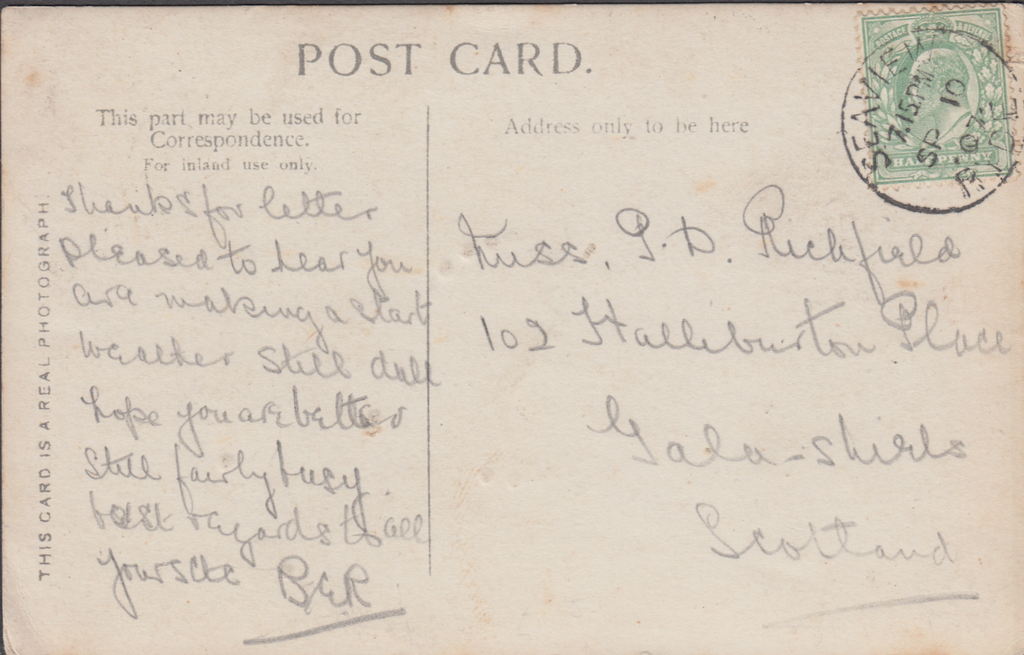 POST CARD.
This part may be used for
Correspondence.
For inland use only.
Address only to be here
THIS CARD IS A REAL PHOTOGRAPH.
Thanks for letter
pleased to hear you
are making a start
weather still dull
hope you are better
still fairly busy
best regards to all
yours etc BER
Miss. P. D. Richfield
102 Halleburton Place
Gala-shiels
Scotland
SEAVIEW
7.15 PM
SP 10
07
HALFPENNY
POSTAGE